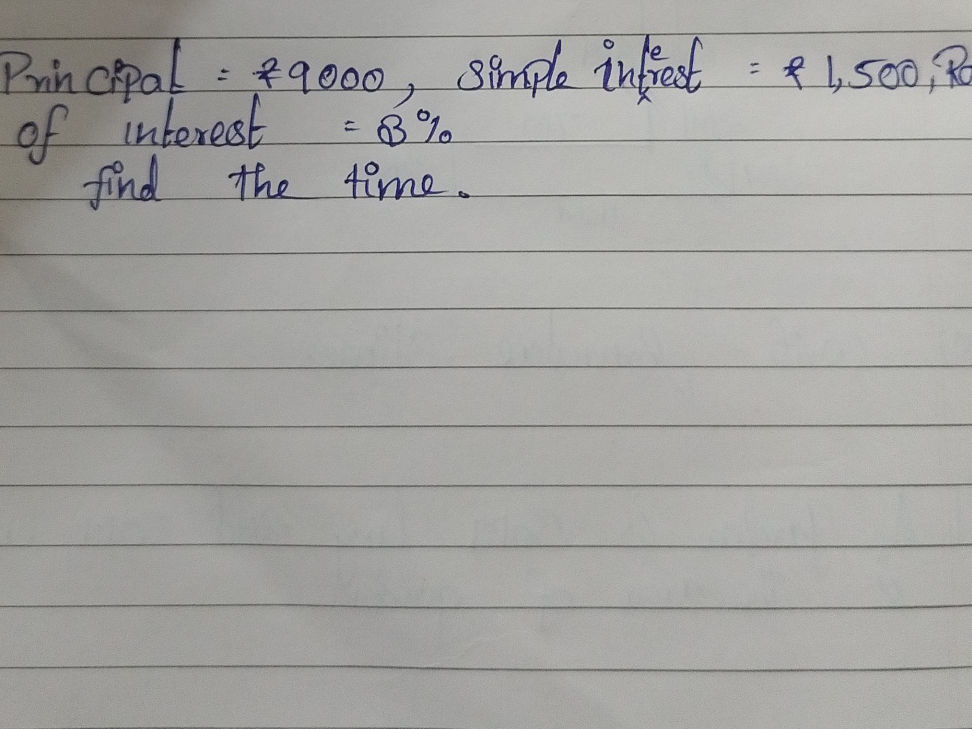 Principal = ₹9000, simple interest = ₹ 1,500, Ra
of interest = 8%
find the time.